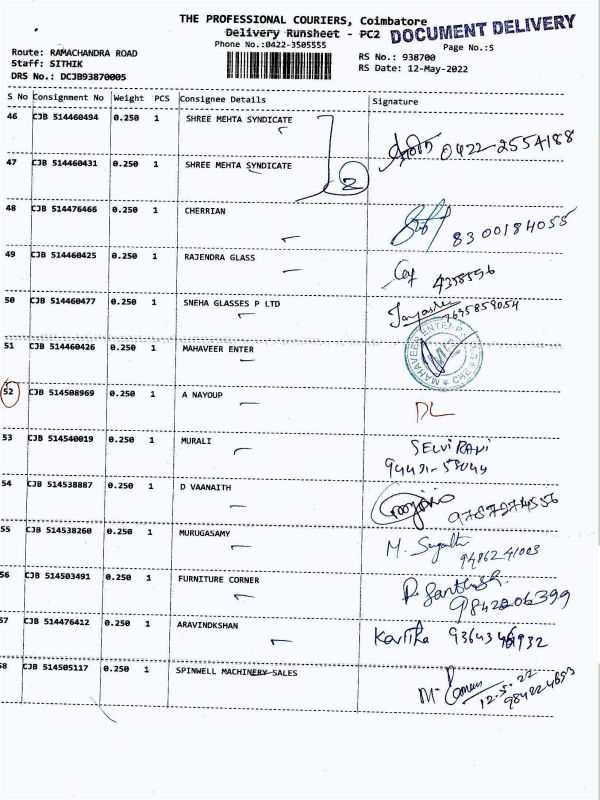 THE PROFESSIONAL COURIERS, Coimbatore
Delivery Runsheet - PC2
DOCUMENT DELIVERY
Phone No.:0422-3505555
Page No.:5
Route: RAMACHANDRA ROAD
Staff: SITHIK
DRS No.: DCJB93870005
RS No.: 938700
RS Date: 12-May-2022
S No Consignment No Weight PCS Consignee Details Signature
46 CJB 514460494 0.250 1 SHREE MEHTA SYNDICATE
0422-2554188
47 CJB 514460431 0.250 1 SHREE MEHTA SYNDICATE
2
48 CJB 514476466 0.250 1 CHERRIAN
8300184055
49 CJB 514460425 0.250 1 RAJENDRA GLASS
4358596
50 CJB 514460477 0.250 1 SNEHA GLASSES P LTD
7695859054
51 CJB 514460426 0.250 1 MAHAVEER ENTER
MAHAVEER ENTERPRISES
52 CJB 514508969 0.250 1 A NAYOUP DL
53 CJB 514540019 0.250 1 MURALI SELVI RANI
54 CJB 514538887 0.250 1 D VAANAITH
9787274556
55 CJB 514538260 0.250 1 MURUGASAMY M.
9486241003
56 CJB 514503491 0.250 1 FURNITURE CORNER P. Santhosh
9842206399
57 CJB 514476412 0.250 1 ARAVINDKSHAN Kartika
58 CJB 514505117 0.250 1 SPINWELL MACHINERY SALES M.
12.5.22